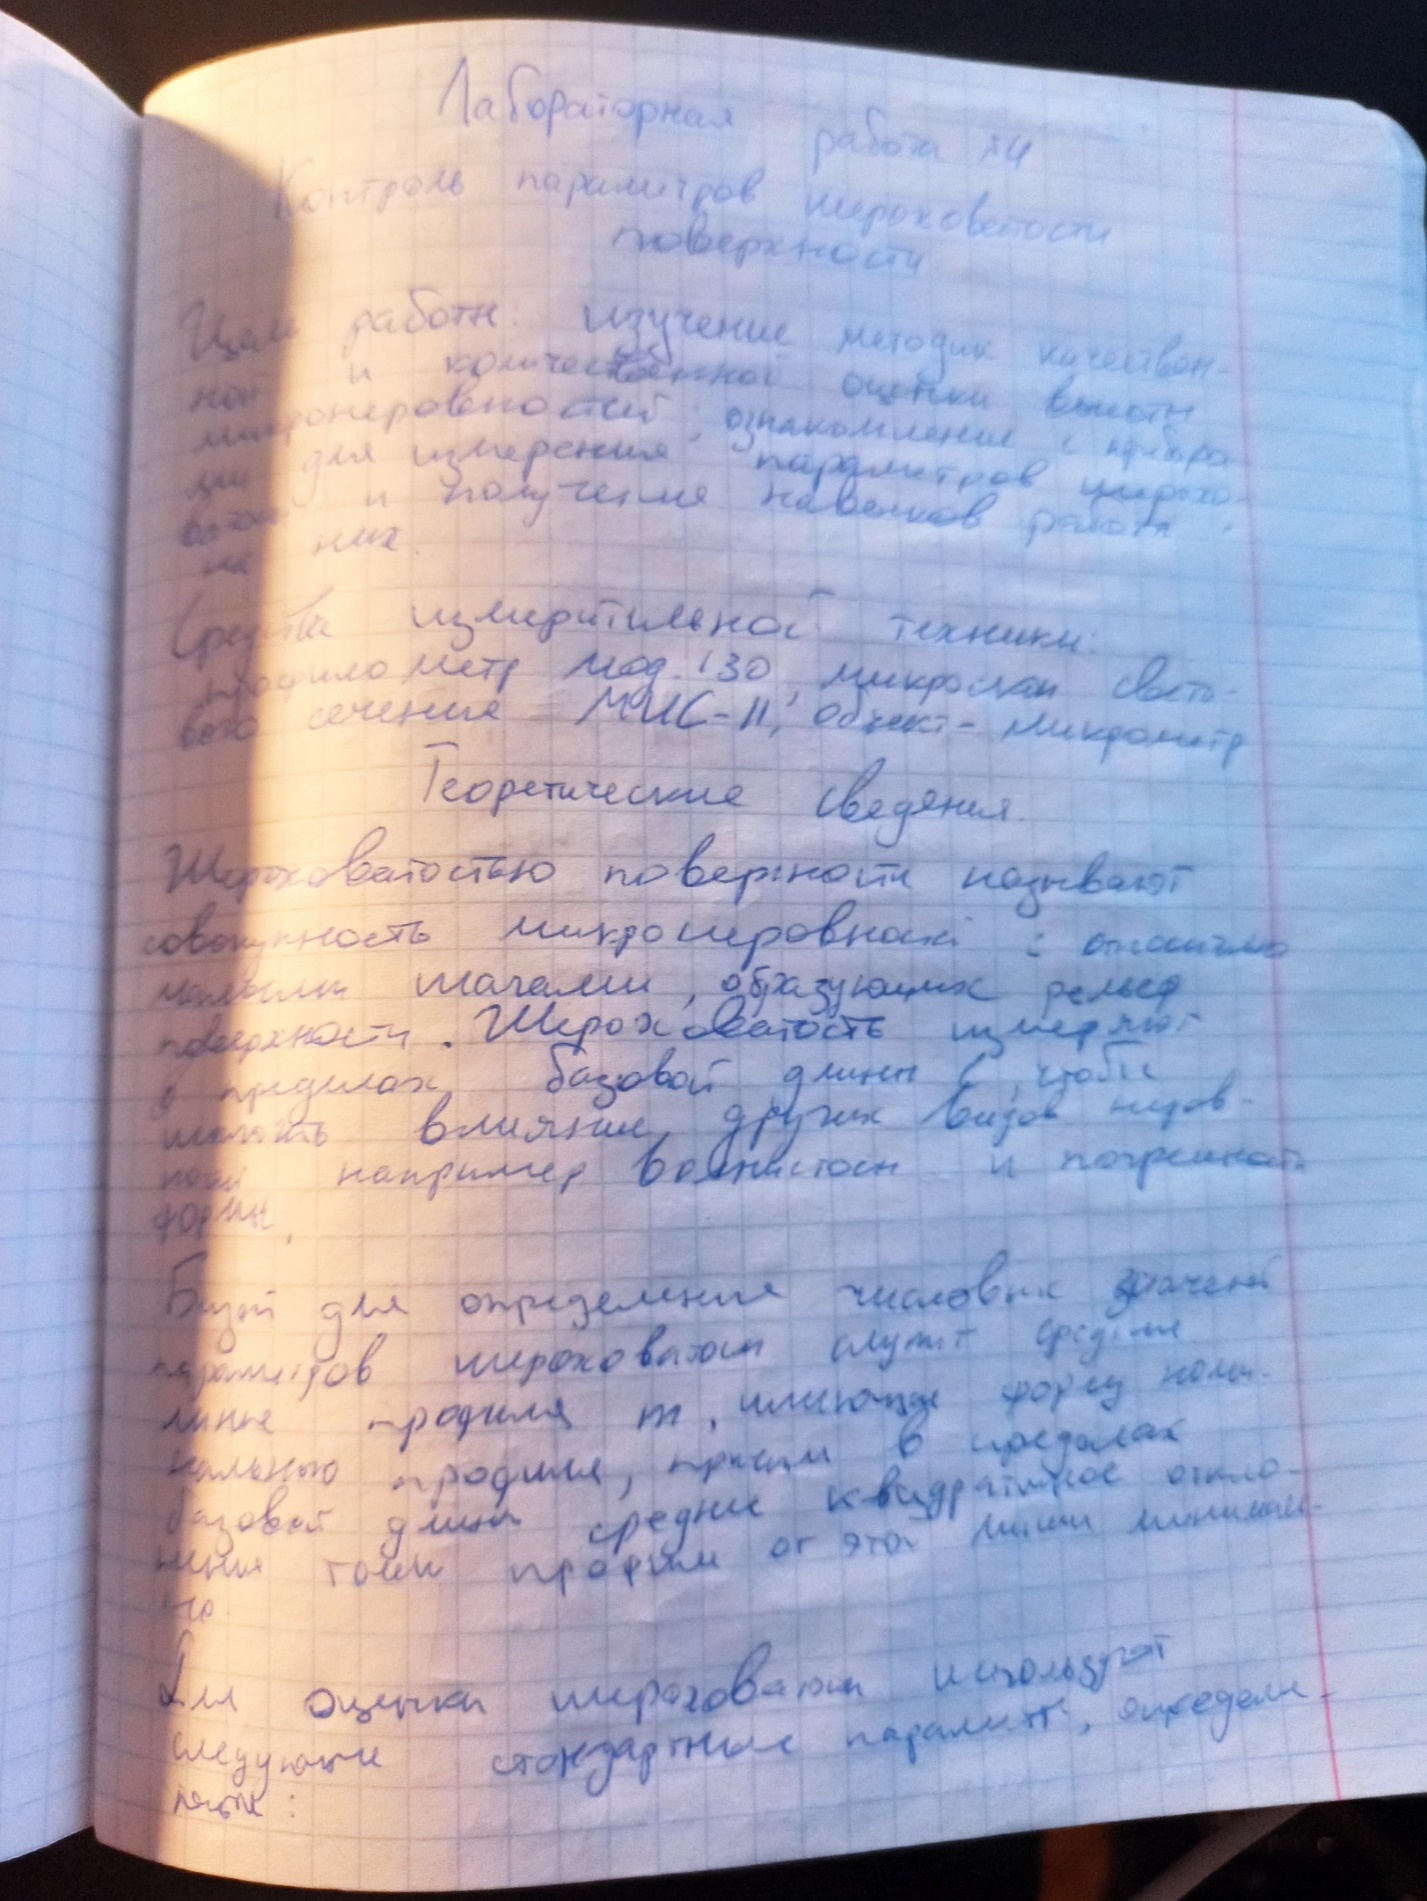 Лабораторная работа №4
Контроль параметров шероховатости
поверхности
Цель работы: изучение методик качествен-
ной и количественной оценки высоты
микронеровностей, ознакомление с прибора
ми для измерения параметров шерохо-
ватости и получение навыков работы
на них.
Средства измерительной техники:
профилометр мод. 130, микроскоп свето-
вого сечения МИС-11, объект-микрометр
Теоретические сведения.
Шероховатостью поверхности называют
совокупность микронеровностей с относительно
малыми шагами, образующих рельеф
поверхности. Шероховатость измеряют
в пределах базовой длины l, чтобы
влияние других видов неров-
ностей например волнистости и погрешности
формы.
Базой для определения числовых значений
параметров шероховатости служит средняя
линия профиля m, имеющая форму номи-
нального профиля, причем в пределах
базовой длины среднее квадратичное откло-
нения точек профиля от этой линии минималь-
но.
Для оценки шероховатости используют
следующие стандартные параметры, определе-
: